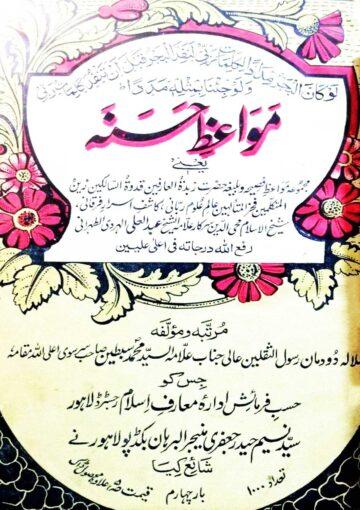 لو كان البحر مدادا لكلمات ربي لنفد البحر قبل ان تنفد كلمت ربي
ولو جئنا بمثله مددا
مَوَاعظِ حَسَنہ
یعنی
مجموعہ مواعظ فصیحہ و بلیغہ حضرت زبدۃ العارفین قدوۃ السالکین زین
المتکلمین فخر المتالہین عالم علوم ربانی، کاشف اسرار فرقانی،
شیخ الاسلام محی الدین سرکار علامہ الشیخ عبدالعلی الہروی الطہرانی
رفع اللہ درجاتہ فی اعلیٰ علیین
مرتبہ و مؤلفہ
سلالہ دودمان رسول الثقلین عالی جناب علامہ السید محمد سبطین صاحب سرسوی اعلی اللہ مقامہ
جس کو
حسب فرمائش ادارۂ معارف اسلام رجسٹرڈ لاہور
سید نسیم حیدر جعفری منیجر البرہان بکڈپو لاہور نے
شائع کیا
تعداد ۱۰۰۰
بار چہارم
قیمت علاوہ محصول ڈاک